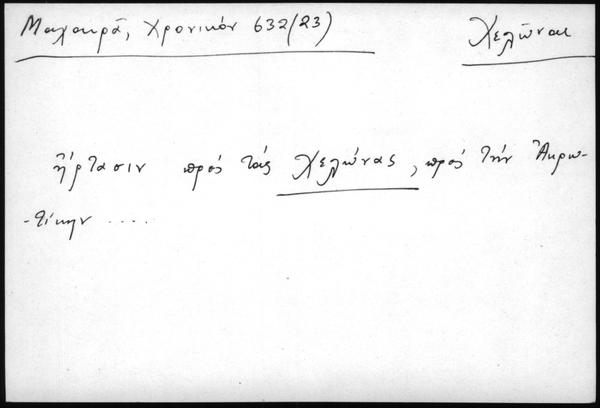 Μαχαιρᾶ, Χρονικόν 632(23)
Χελῶναι
ἦρτασιν πρὸς τὰς Χελώνας, πρὸς τὴν Ἀκρω-
-τίκην ....